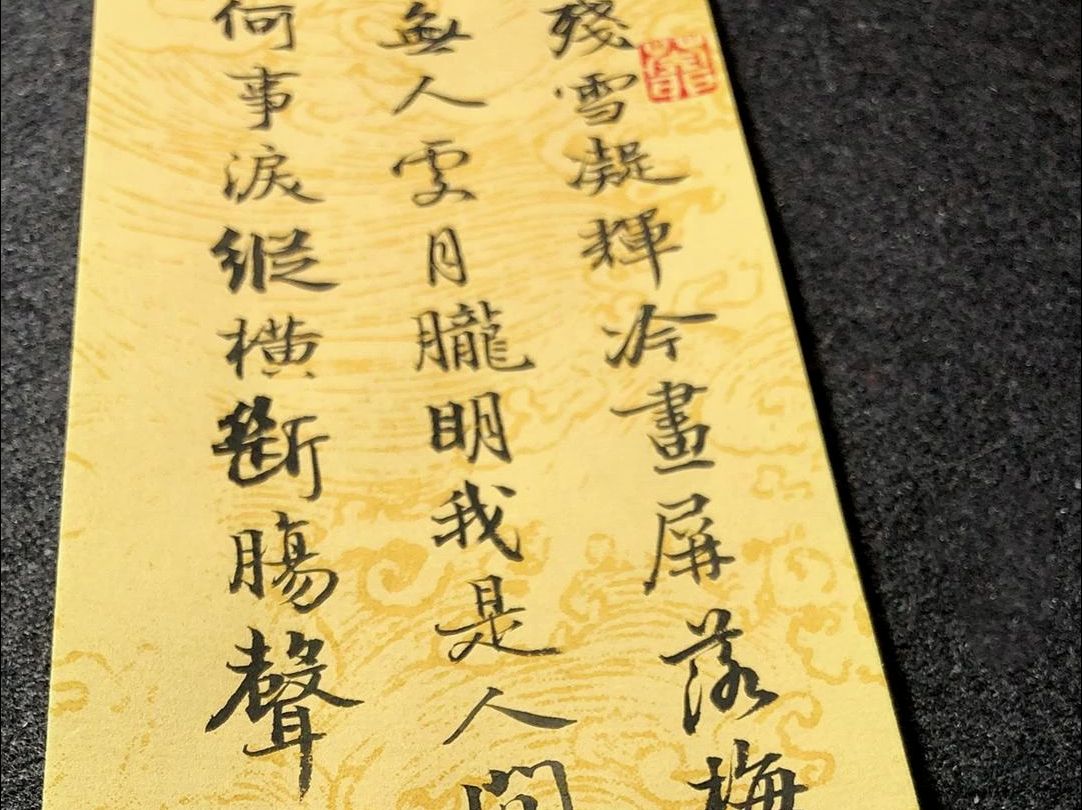 殘雪凝輝冷畫屏落梅
無人處月朧明我是人間
何事淚縱橫斷腸聲